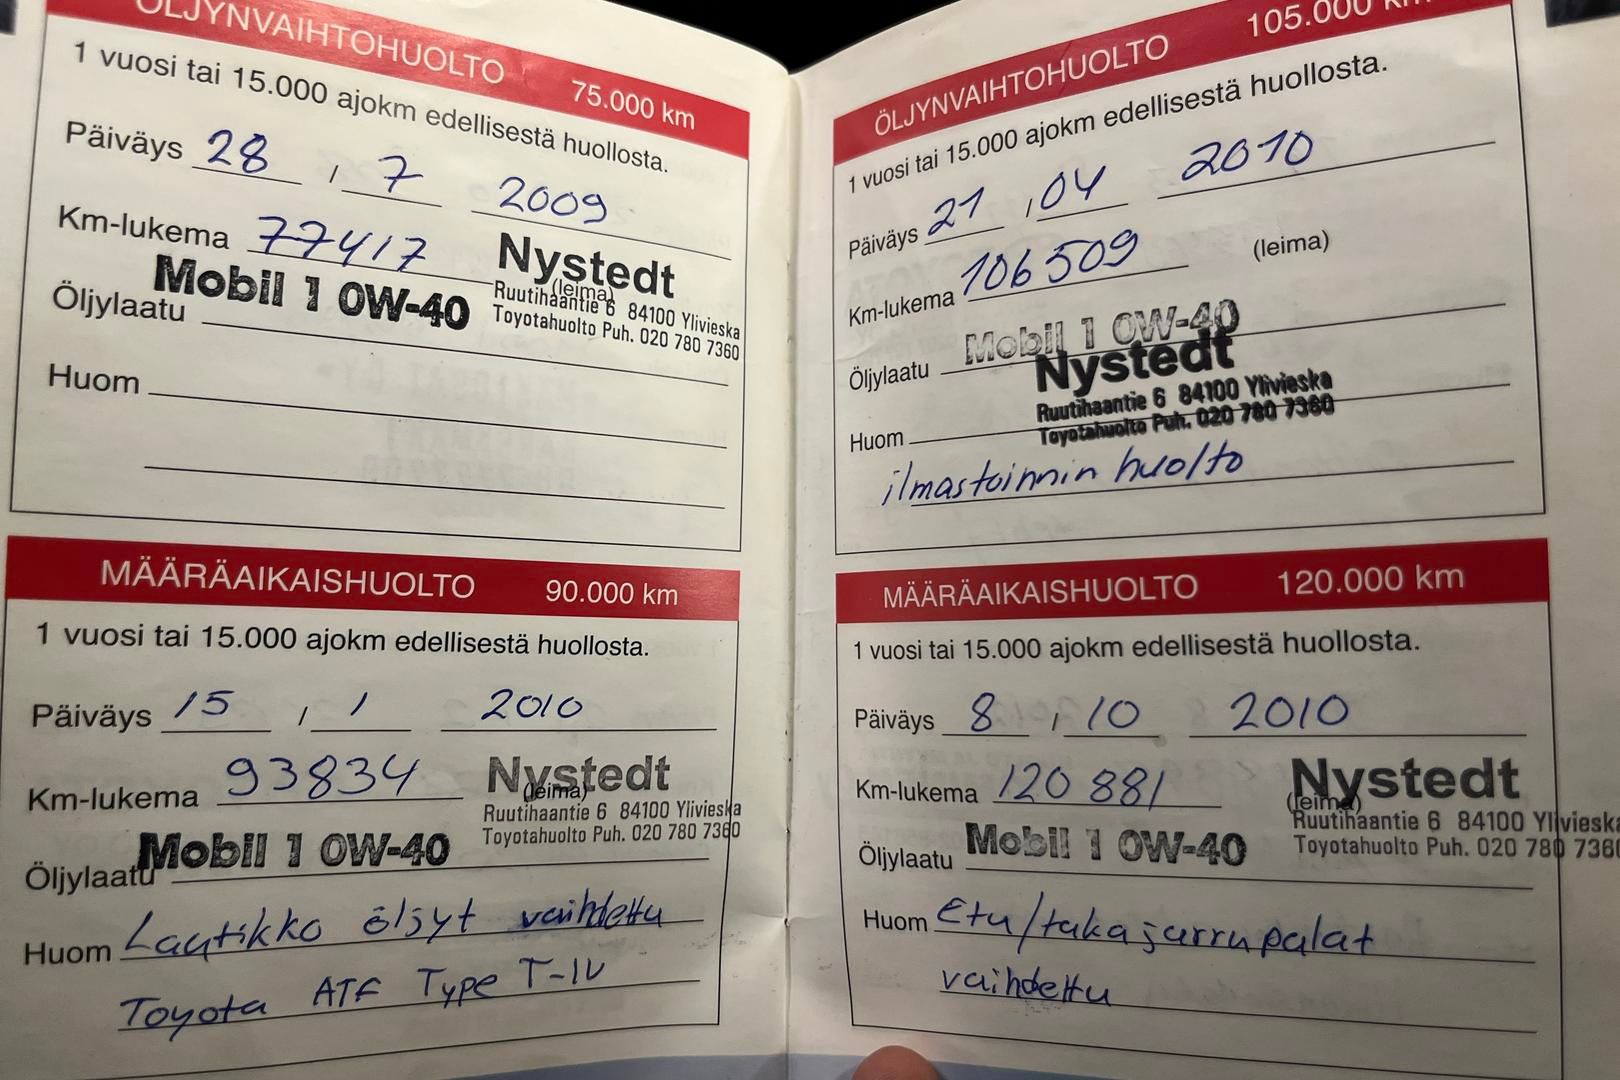 ÖLJYNVAIHTOHUOLTO 75.000 km
1 vuosi tai 15.000 ajokm edellisestä huollosta.
Päiväys 28 / 7 2009
Km-lukema 77417
Nystedt
(leima)
Ruutihaantie 6 84100 Ylivieska
Toyotahuolto Puh. 020 780 7360
Öljylaatu Mobil 1 0W-40
Huom
MÄÄRÄAIKAISHUOLTO 90.000 km
1 vuosi tai 15.000 ajokm edellisestä huollosta.
Päiväys 15 / 1 2010
Km-lukema 93834
Nystedt
(leima)
Ruutihaantie 6 84100 Ylivieska
Toyotahuolto Puh. 020 780 7360
Öljylaatu Mobil 1 0W-40
Huom Laatikko öljyt vaihdettu
Toyota ATF Type T-IV
ÖLJYNVAIHTOHUOLTO 105.000 km
1 vuosi tai 15.000 ajokm edellisestä huollosta.
Päiväys 21 / 04 2010
Km-lukema 106509 (leima)
Öljylaatu Mobil 1 0W-40
Nystedt
Ruutihaantie 6 84100 Ylivieska
Toyotahuolto Puh. 020 780 7360
Huom
ilmastoinnin huolto
MÄÄRÄAIKAISHUOLTO 120.000 km
1 vuosi tai 15.000 ajokm edellisestä huollosta.
Päiväys 8 / 10 2010
Km-lukema 120 881
Nystedt
(leima)
Ruutihaantie 6 84100 Ylivieska
Toyotahuolto Puh. 020 780 7360
Öljylaatu Mobil 1 0W-40
Huom Etu/taka jarrupalat
vaihdettu